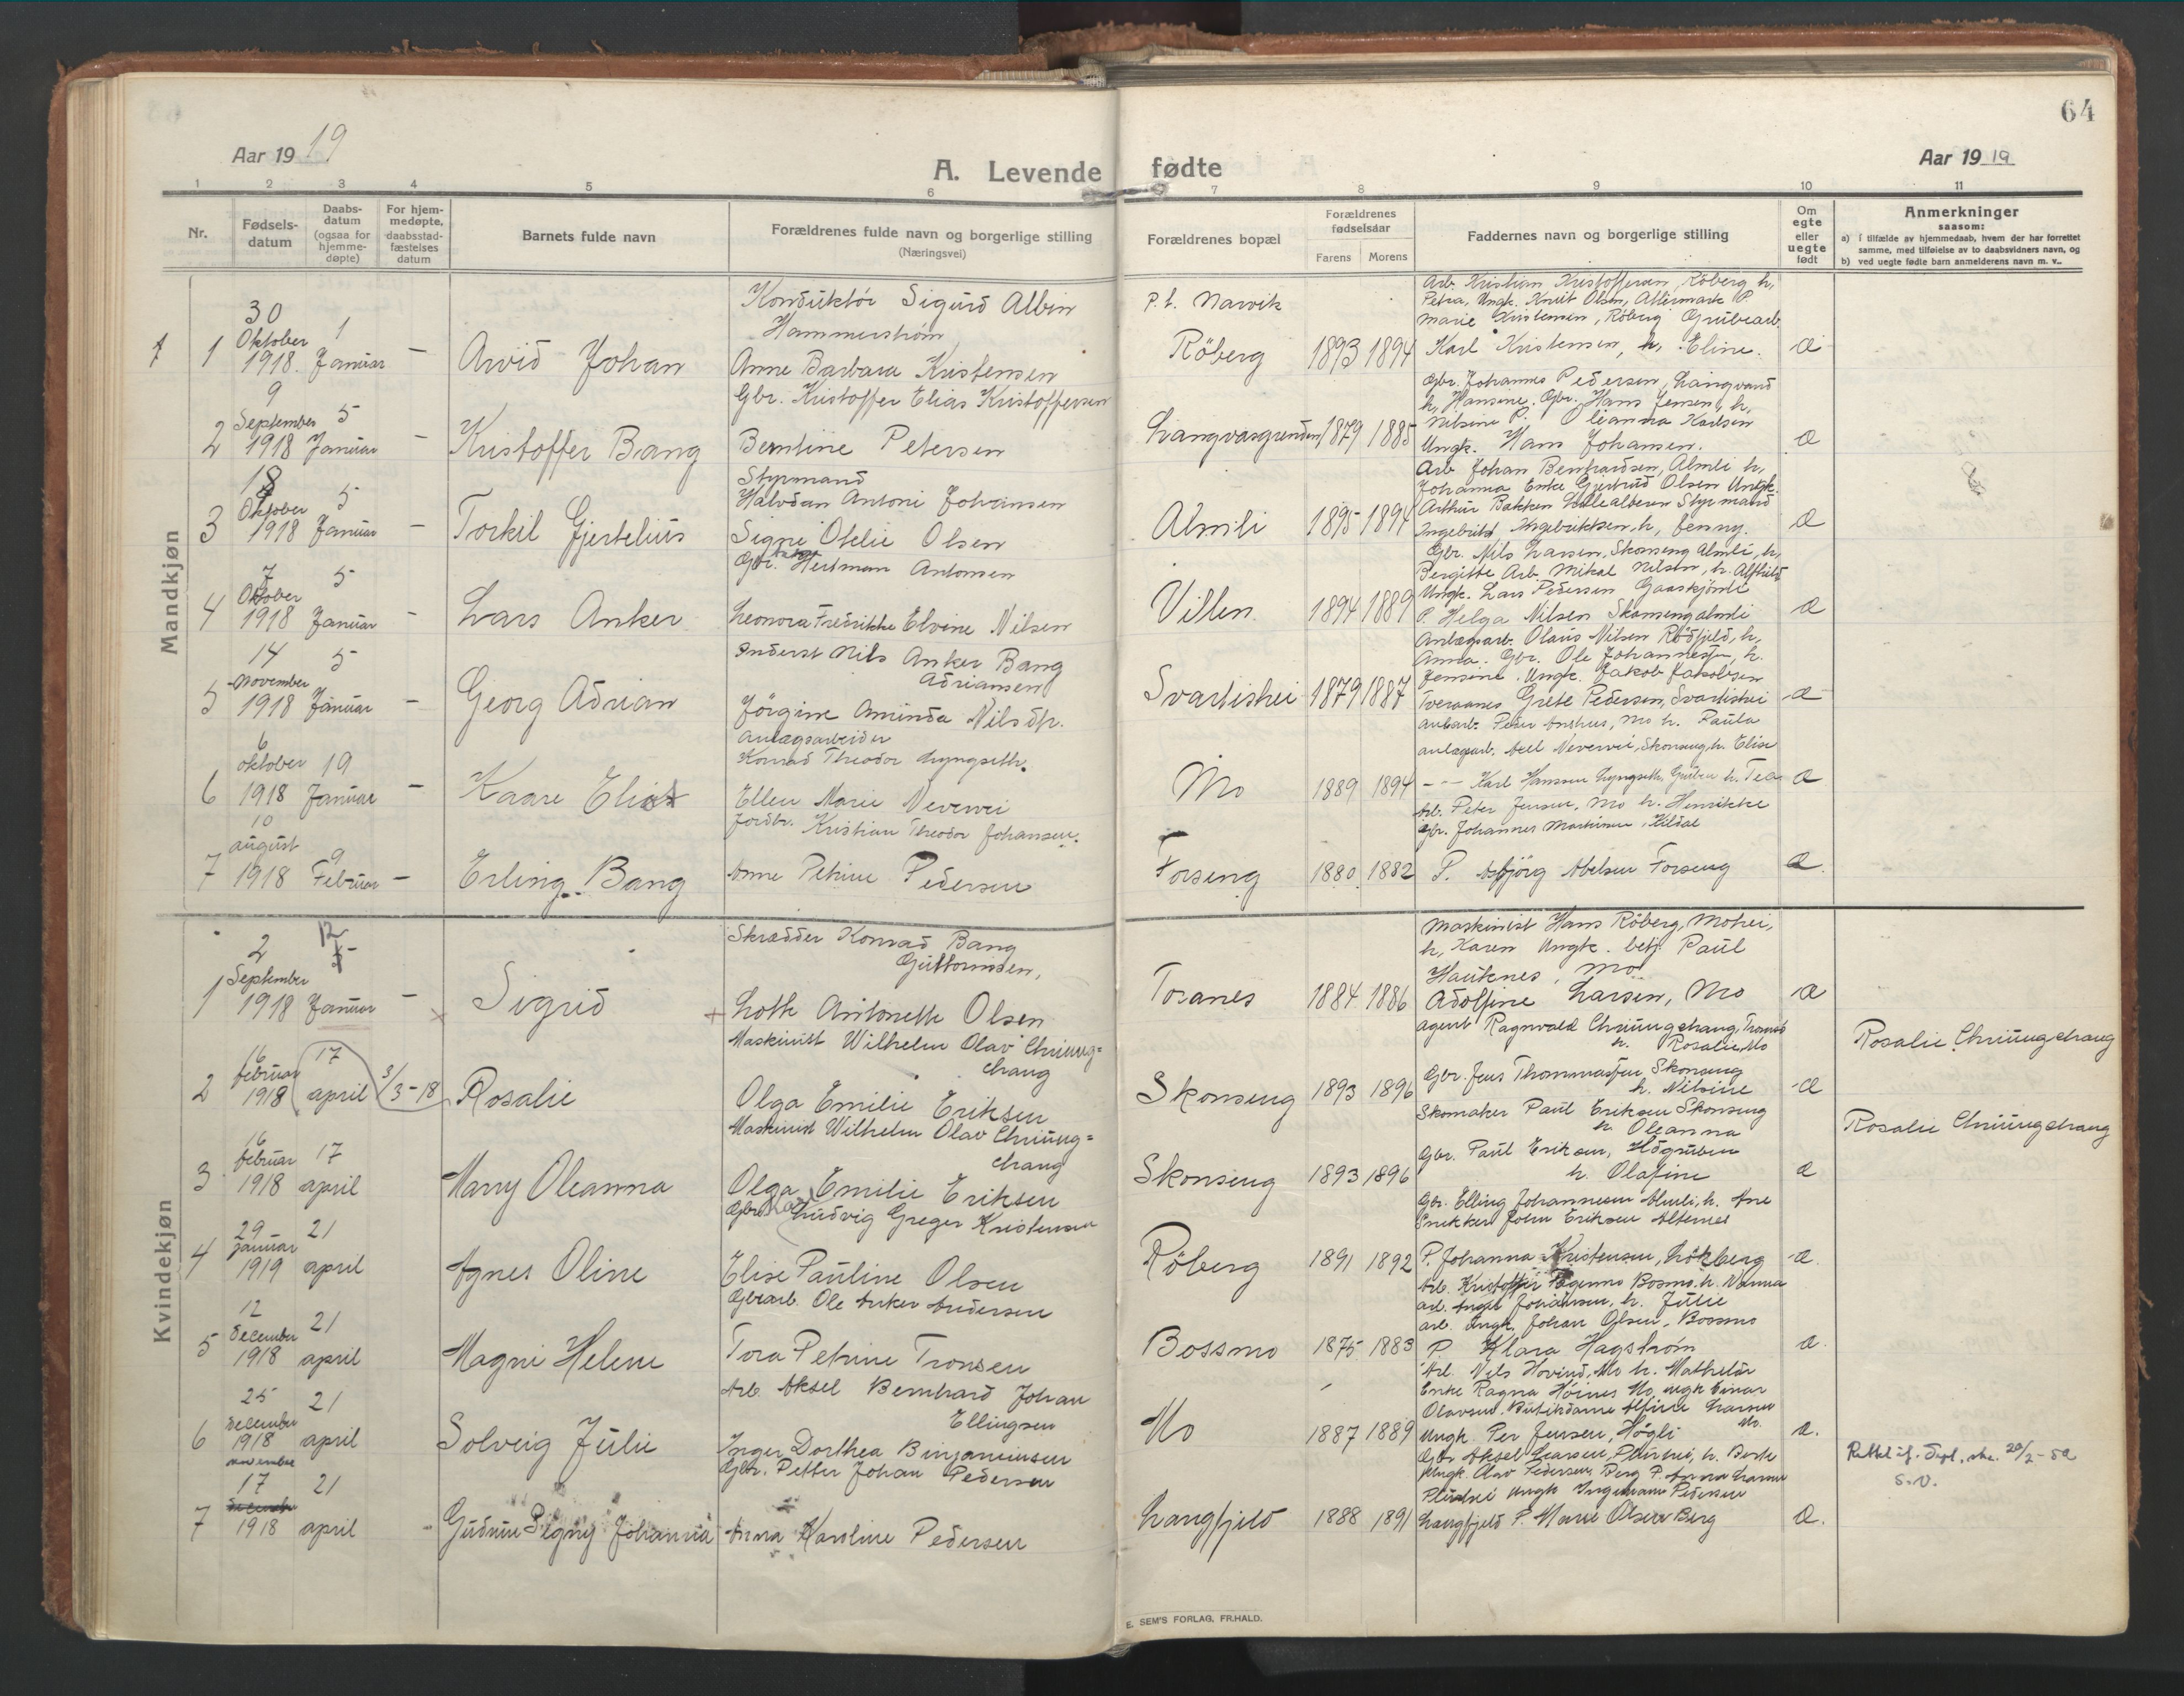 64
Aar 1919
A. Levende fødte
Aar 1919
1 2 3 4 5 6 7 8 9 10 11
Nr.
Fødsels-
datum
Daabs-
datum
(ogsaa for
hjemme-
døpte)
For hjem-
medøpte,
daabsstad-
fæstelses
datum
Barnets fulde navn
Forældrenes fulde navn og borgerlige stilling
(Næringsvei)
Forældrenes bopæl
Forældrenes
fødselsaar
Farens Morens
Faddernes navn og borgerlige stilling
Om
egte
eller
uegte
født
Anmerkninger
saasom:
a) i tilfælde av hjemmedaab, hvem der har forrettet
samme, med tilføielse av to daabsvidners navn, og
b) ved uegte fødte barn anmelderens navn m. v..
Mandkjøn
1 1
30
Oktober
1918.
1
Januar
–
Arvid Johan
Konduktör Sigurd Albin
Hammerström
Anne Barbara Kristensen
p.t. Narvik
Röberg
1893 1894
Arb. Kristian Kristoffersen, Röberg h,
Petra, Ungk. Knut Olsen, Altermark P.
Marie Kristensen, Röberg Grubearb.
Karl Kristensen, h, Eline.
æ
2
9
September
1918
5
Januar
–
Kristoffer Bang
Gbr. Kristoffer Elias Kristoffersen
Berntine Petersen
Langvasgrunden
1879 1885
Gbr. Johannes Pedersen, Langvand
h, Hansine. Gbr. Hans Jensen, h,
Nilsine P. Oleanna Karlsen
Ungk. Hans Johansen.
æ
3
18
Oktober
1918
5
Januar
–
Torkil Gjertelius
Styrmand
Halvdan Antoni Johansen
Signe Otelie Olsen
Almli
1895 1894
Arb Johan Bernhardsen, Almli h,
Johanna Enke Gjertrud Olsen Ungk.
Arthur Bakken Lillealteren Styrmand
Ingebrikt Ingebriktsen, h, Jenny.
æ
4
7
Oktober
1918
5
Januar
–
Lars Anker
Gbr. Hertman Antonsen
Leonora Fredrikke Elvine Nilsen
Villen
1894 1889
Gbr. Nils Larsen, Skonseng Almli, h,
Bergitte Arb. Mikal Nilsen, h. Alfhild
Ungk. Lars Pedersen Gaaskjönli
P. Helga Nilsen Skonsengalmli
æ
5
14
November
1918
5
Januar
–
Georg Adrian
Inderst Nils Anker Bang
Adriansen
Jörgine Aminda Nilsdtr.
Svartishei
1879 1887
Anlægsarb. Olaus Nilsen Rödfjeld, h,
Anna. Gbr. Ole Johannessen h.
Jensine. Ungk. Jakob Jakobsen
Tveraanes Grete Pedersen, Svartishei
æ
6
6
oktober
1918
19
Januar
–
Kaare Elias
Anlægsarbeider
Konrad Theodor Lyngseth.
Ellen Marie Nevervei
Mo
1889 1894
anlægsarb. Axel Nevervei, Skonseng h. Elise
–"– Karl Hansen Lyngseth, Gruben h. Tea
Arb. Peter Jensen, Mo h. Henrikke
æ
7
10
august
1918
9
Februar
–
Erling Bang
Jordbr. Kristian Theodor Johansen.
Anne Petrine Pedersen
Forseng
1880 1882
Gbr. Johannes Martinsen, Kildal
P. Asbjörg Abelsen Forseng
æ
Kvindekjøn
1
2
September
1918
12
Januar
–
Sigrid
Skrædder Konrad Bang
Guttormsen,
Lotte Antonette Olsen
Toranes
1884 1886
Maskinist Hans Röberg, Mohei,
h, Karen Ungk. betj. Paul
Hauknes, Mo
Adolfine Larsen, Mo
æ
2
16
februar
1918
17
april
3/3-18
Rosalie
Maskinist Wilhelm Olav Chriung=
chaug
Olga Emilie Eriksen
Skonseng
1893 1896
agent Ragnvald Chriungchaug, Tromsö
h. Rosalie, Mo
Gbr. Jens Thommassen Skonseng
h. Nilsine
æ
Rosalie Chriungchaug
3
16
februar
1918
17
april
Marry Oleanna
Maskinist Wilhelm Olav Chriung=
chaug
Olga Emilie Eriksen
Skonseng
1893 1896
Skomaker Paul Eriksen Skonseng
h. Oleanna
Gbr. Paul Eriksen, Högruben
h. Olafine
æ
Rosalie Chriungchaug
4
29
januar
1919
21
april
Agnes Oline
Ludvig Greger Kristensen
Elise Pauline Olsen
Röberg
1891 1892
Gbr. Elling Johannesen Almli, h. Ane
Snekker John Eriksen Alternes
P. Johanna Kristensen, Rökberg
æ
5
12
December
1918
21
april
Magni Helene
Gbrarb. Ole Anker Andersen
Tora Petrine Tronsen
Bossmo
1875 1883
arb. Ungk. Johan Olsen, Bossmo
P. Klara Hagström
æ
6
25
december
1918
21
april
Solveig Julie
Arb. Aksel Bernhard Johan
Ellingsen
Inger Dorthea Binjaminsen
Mo
1887 1889
Arb. Nels Hovind, Mo h. Mathelde
Enke Ragna Höines Mo, ungk Einar
Olavsen, Butikdame Alfine Larsen
Mo.
Ungk. Per Jensen, Högli
æ.
7
november
17
1918
21
april
Gudrun Signy Johanna
Gbr. Petter Johan Pedersen
Anna Karoline Pedersen
Langfjeld
1888 1891
Ungk. Olav Pedersen, Berg P. Anna Larsen
Plurhei Ungk Ingemann Pedersen
Langfjeld P. Marie Olsen Berg
æ.
20/2-52
S.V.
E. SEM'S FORLAG, FR.HALD.